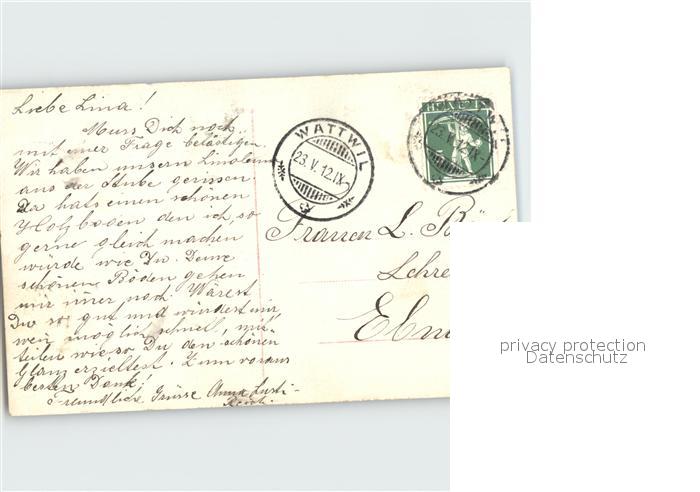 Liebe Lina!
Muss Dich noch
mit einer Frage belästigen.
Wir haben unsern Linoleum
aus der Stube gerissen
Da hats einen schönen
Holzboden den ich, so
gerne gleich machen
würde wie Du. Deine
schönen Böden gehen
mir imer nach Wärest
Du so gut und würdest mir
wen möglich schnell, mit-
teilen wie so Du den schönen
Glanz erzieltest. Zum voraus
besten Dank!
Freundliche Grüsse Anna
WATTWIL
23.V.12.IX-
Frauen L.
Schre
Ebn
privacy protection
Datenschutz